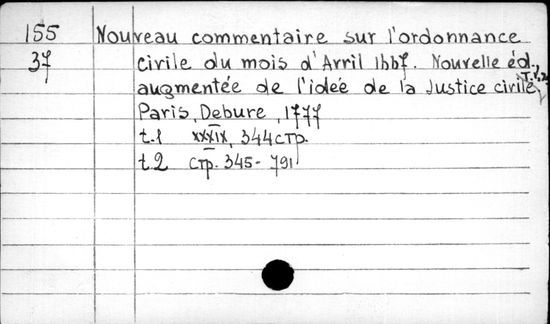 155 Nouveau commentaire sur l'ordonnance
37 civile du mois d'Avril 1667. Nouvelle éd.,
augmentée de l'idée de la Justice civile, T.1,2
Paris, Debure, 1777
t.1 XXXIX, 344 стр.
t.2 стр. 345-791